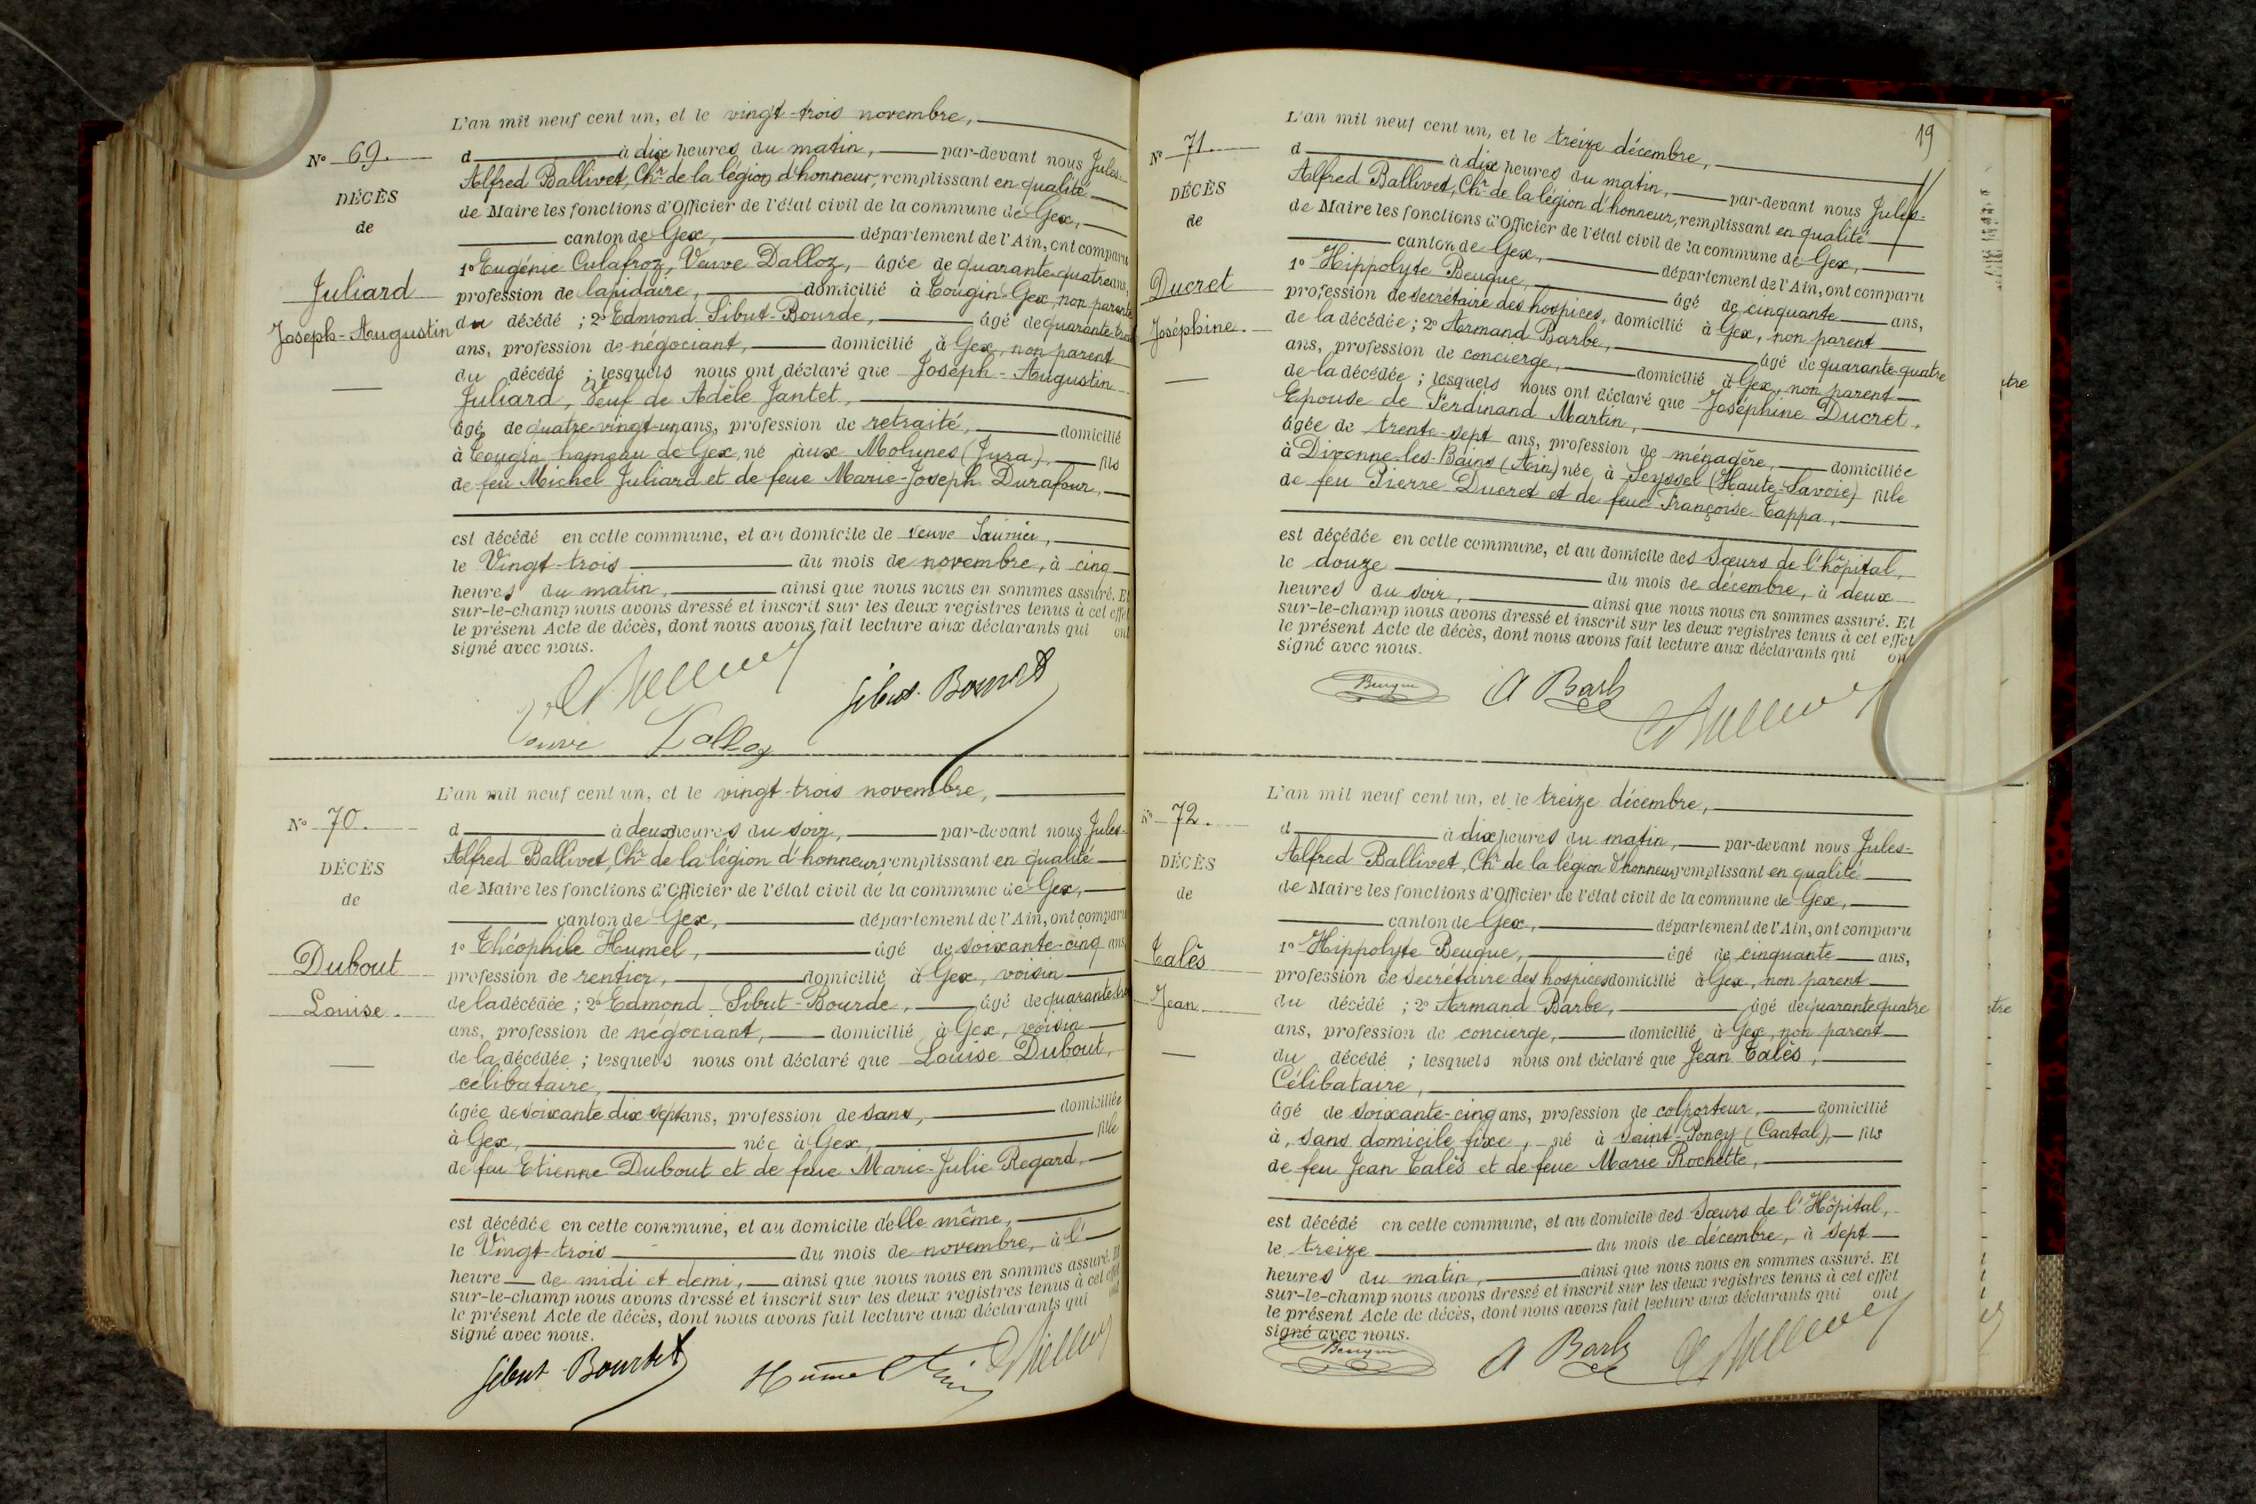 L'an mil neuf cent un, et le vingt-trois novembre,
N° 69.
d à dix heures du matin, par-devant nous Jules-
Alfred Ballivet, Chr de la légion d'honneur, remplissant en qualité
DÉCÈS
de Maire les fonctions d'Officier de l'état civil de la commune de Gex,
de
canton de Gex, département de l'Ain, ont comparu
1° Eugénie Culafroz, Veuve Dalloz, âgée de quarante-quatre ans,
Juliard
profession de lapidaire, domicilié à Tougin-Gex, non parente
Joseph-Augustin
du décédé ; 2° Edmond Sibut-Bourde, âgé de quarante-trois
ans, profession de négociant, domicilié à Gex, non parent
du décédé ; lesquels nous ont déclaré que Joseph-Augustin
Juliard, Veuf de Adèle Jantet,
âgé de quatre-vingt-un ans, profession de retraité, domicilié
à Tougin hameau de Gex, né aux Molunes (Jura), fils
de feu Michel Juliard et de feue Marie-Joseph Durafour,
est décédé en cette commune, et au domicile de veuve
le Vingt-trois du mois de novembre, à cinq
heures du matin, ainsi que nous nous en sommes assuré. Et
sur-le-champ nous avons dressé et inscrit sur les deux registres tenus à cet effet
le présent Acte de décès, dont nous avons fait lecture aux déclarants qui ont
signé avec nous.
Sibut-Bourde
Veuve Dalloz
L'an mil neuf cent un, et le vingt-trois novembre,
N° 70.
d à deux heures du soir, par-devant nous Jules-
Alfred Ballivet, Chr de la légion d'honneur, remplissant en qualité
DÉCÈS
de Maire les fonctions d'Officier de l'état civil de la commune de Gex,
de
canton de Gex, département de l'Ain, ont comparu
1° Théophile Humel, âgé de soixante-cinq ans
Dubout
profession de rentier, domicilié à Gex, voisin
Louise.
de la décédée ; 2° Edmond Sibut-Bourde, âgé de quarante-trois
ans, profession de négociant, domicilié à Gex, voisin
de la décédée ; lesquels nous ont déclaré que Louise Dubout,
célibataire,
âgée de soixante dix sept ans, profession de sans, domiciliée
à Gex, née à Gex, fille
de feu Etienne Dubout et de feue Marie-Julie Regard,
est décédée en cette commune, et au domicile d'elle même,
le Vingt-trois du mois de novembre, à l'
heure de midi et demi, ainsi que nous nous en sommes assuré. Et
sur-le-champ nous avons dressé et inscrit sur les deux registres tenus à cet effet
le présent Acte de décès, dont nous avons fait lecture aux déclarants qui ont
signé avec nous.
Sibut-Bourde Humel
19
L'an mil neuf cent un, et le treize décembre,
N° 71.
d à dix heures du matin, par-devant nous Jules-
Alfred Ballivet, Chr de la légion d'honneur, remplissant en qualité
DÉCÈS
de Maire les fonctions d'Officier de l'état civil de la commune de Gex,
de
canton de Gex, département de l'Ain, ont comparu
1° Hippolyte Beugue, âgé de cinquante ans,
Ducret
profession de secrétaire des hospices, domicilié à Gex, non parent
Joséphine.
de la décédée ; 2° Armand Barbe, âgé de quarante-quatre
ans, profession de concierge, domicilié à Gex, non parent
de la décédée ; lesquels nous ont déclaré que Joséphine Ducret,
Epouse de Ferdinand Martin,
âgée de trente-sept ans, profession de ménagère, domiciliée
à Divonne-les-Bains (Ain) née à Seyssel (Haute-Savoie) fille
de feu Pierre Ducret et de feue Françoise Tappa,
est décédée en cette commune, et au domicile des Sœurs de l'hôpital,
le douze du mois de décembre, à deux
heures du soir, ainsi que nous nous en sommes assuré. Et
sur-le-champ nous avons dressé et inscrit sur les deux registres tenus à cet effet
le présent Acte de décès, dont nous avons fait lecture aux déclarants qui on
signé avec nous.
Beugue A Barbe
L'an mil neuf cent un, et le treize décembre,
N° 72.
d à dix heures du matin, par-devant nous Jules-
Alfred Ballivet, Chr de la légion d'honneur remplissant en qualité
DÉCÈS
de Maire les fonctions d'Officier de l'état civil de la commune de Gex,
de
canton de Gex, département de l'Ain, ont comparu
1° Hippolyte Beugue, âgé de cinquante ans,
Talès
profession de secrétaire des hospices domicilié à Gex, non parent
Jean
du décédé ; 2° Armand Barbe, âgé de quarante quatre
ans, profession de concierge, domicilié à Gex, non parent
du décédé ; lesquels nous ont déclaré que Jean Talès,
Célibataire,
âgé de soixante-cinq ans, profession de colporteur, domicilié
à, sans domicile fixe, né à Saint-Poncy (Cantal), fils
de feu Jean Talès et de feue Marie Rochette,
est décédé en cette commune, et au domicile des Sœurs de l'Hôpital,
le treize du mois de décembre, à sept
heures du matin, ainsi que nous nous en sommes assuré. Et
sur-le-champ nous avons dressé et inscrit sur les deux registres tenus à cet effet
le présent Acte de décès, dont nous avons fait lecture aux déclarants qui ont
signé avec nous.
Beugue A Barbe
tre
tre